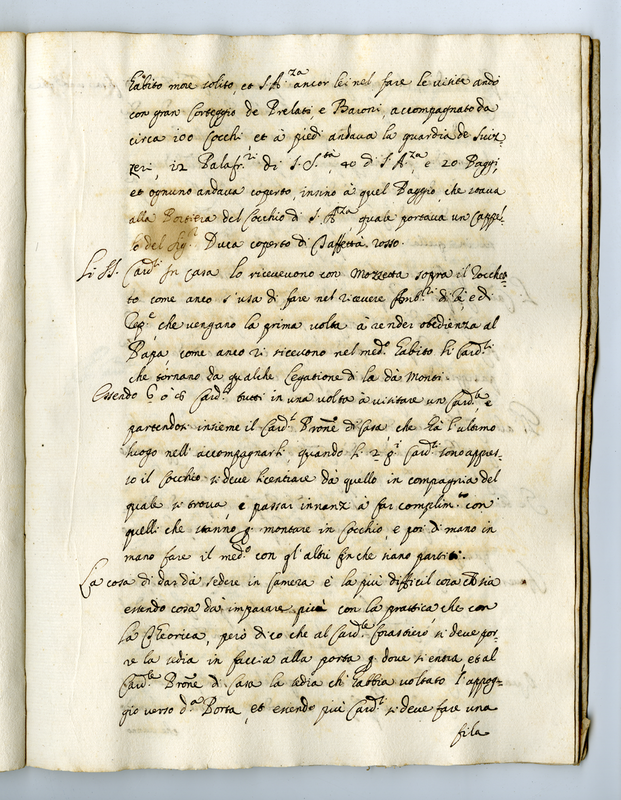 habito more solito, et S. A.za ancor lei nel fare le visite andò
con gran Corteggio de Prelati e Baroni, accompagnato da
circa 100 Cocchi et à piedi andava la guardia de Sviz-
zeri, 12 Palafr.ri di S. S.tà, 40 d. S. A.za, e 20. Paggi,
et ognuno andava coperto, insino à quel Paggio, che stava
alla Portiera del Cocchio di S. A.za quale portava un Cappel-
lo del Sig.r Duca coperto di Taffettà rosso.
Li SS. Card.li In Casa lo ricevevono con Mozzetta sopra il Rocchet-
to come anco s'usa di fare nel ricevere Amb.ri di Rè, e di
Rep.e che vengano la prima volta à render obedienza al
Papa come anco si ricevono nel med.o habito li Card.li
che tornano da qualche Legatione di la dà Monti.
Essendo 6 ò 8 Card.li tutti in una volta à visitare un Card.le, e
partendosi insieme il Card.le Prone di Casa che hà l'ultimo
luogo nell'accompagnarli, quando li 2 p.i Card.li sono appres-
so il Cocchio si deve licentiare dà quello in compagnia del
quale si trova, e passar innanzi à far complim.to con
quelli che stanno p montare in Cocchio, e poi di mano in
mano fare il med.o con gl'altri finche siano partiti.
La cosa di dar dà sedere in Camera è la più difficil cosa che sia
essendo cosa dà imparare più con la prattica che con
la Theorica, però dico che al Card.le forastiero si deve por-
re la sedia in faccia alla porta p dove si entra, et al
Card.le Prone di Casa la sedia ch'habbia voltato l'appog-
gio verso d.a Porta, et essendo più Card.li si deve fare una
fila